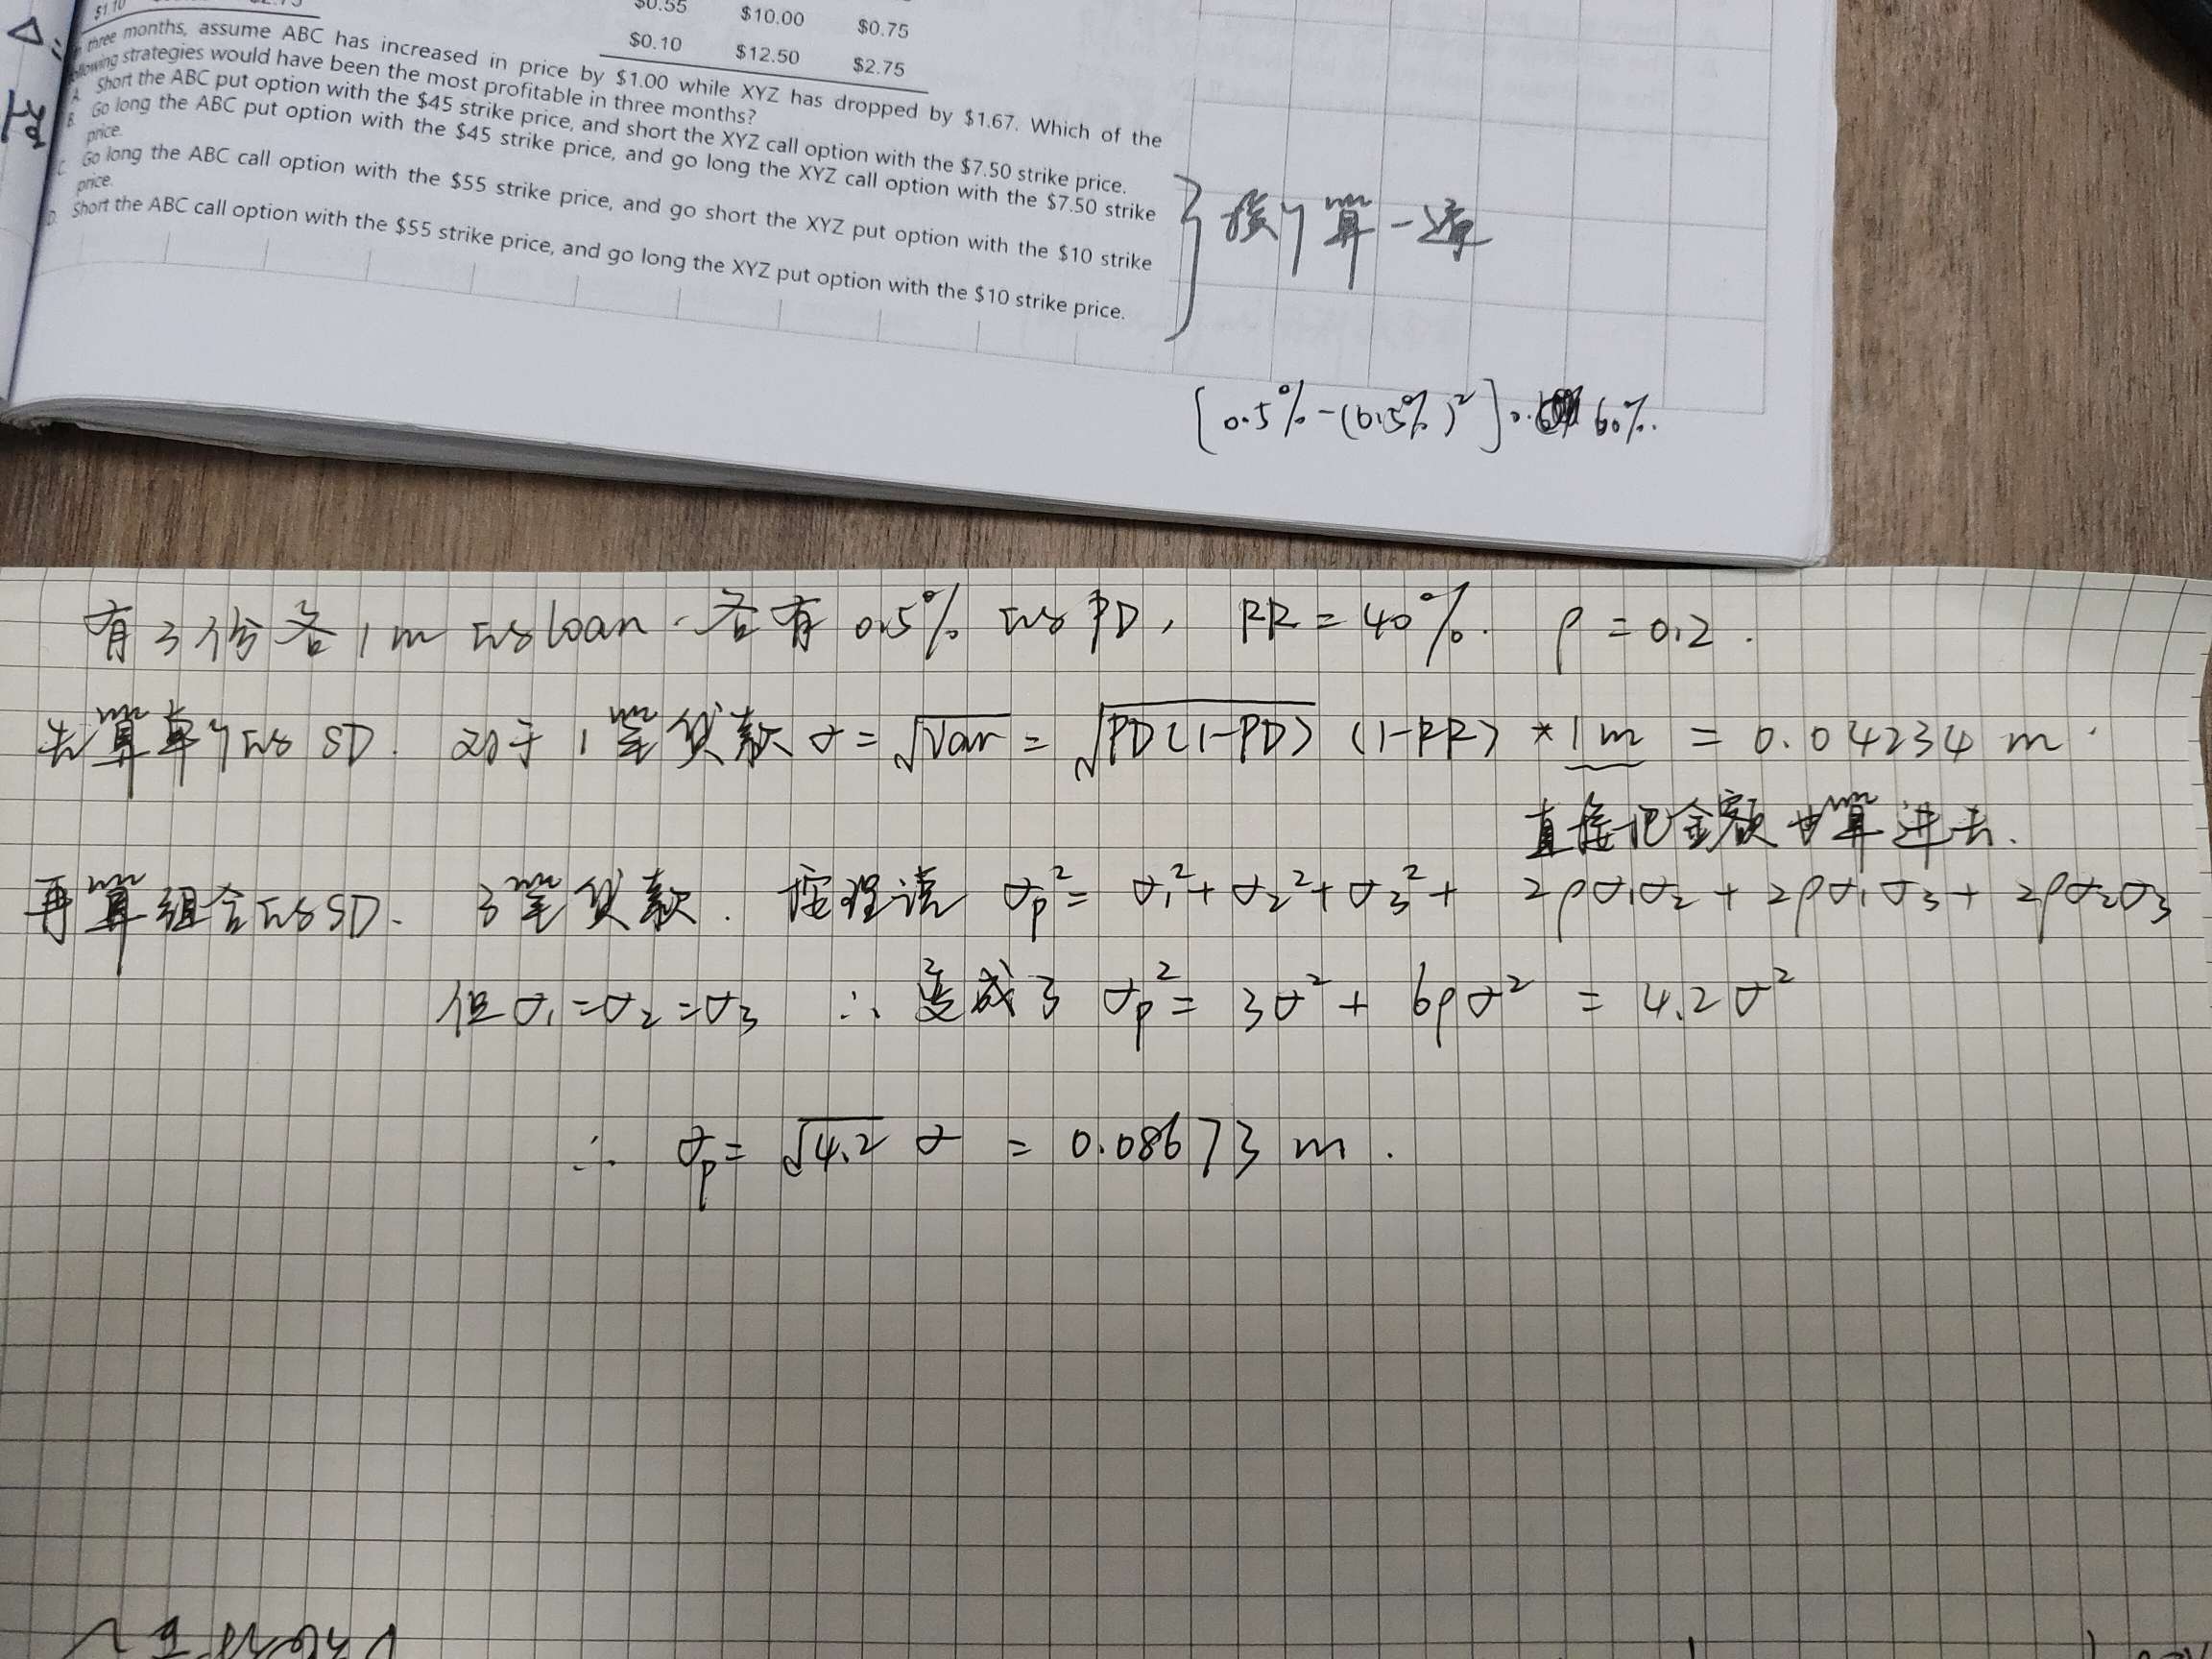 $1.10
$0.55 $10.00 $0.75
$0.10 $12.50 $2.75
three months, assume ABC has increased in price by $1.00 while XYZ has dropped by $1.67. Which of the
following strategies would have been the most profitable in three months?
A. Short the ABC put option with the $45 strike price, and short the XYZ call option with the $7.50 strike price.
B. Go long the ABC put option with the $45 strike price, and go long the XYZ call option with the $7.50 strike
price.
C. Go long the ABC call option with the $55 strike price, and go short the XYZ put option with the $10 strike
price.
D. Short the ABC call option with the $55 strike price, and go long the XYZ put option with the $10 strike price.
挨个算一遍
[0.5%-(0.5%)²] 60%.
有3份各1m的loan.各有0.5%的PD, RR=40%. ρ=0.2.
先算单个的SD. 对于1笔贷款σ=√Var=√PD(1-PD) (1-RR)*1m=0.04234m.
直接把金额也算进去.
再算组合的SD. 3笔贷款. 按理说 σp²=σ1²+σ2²+σ3²+2ρσ1σ2+2ρσ1σ3+2ρσ2σ3
但σ1=σ2=σ3 ∴变成了 σp²=3σ²+6ρσ²=4.2σ²
∴ σp=√4.2 σ=0.08673m.